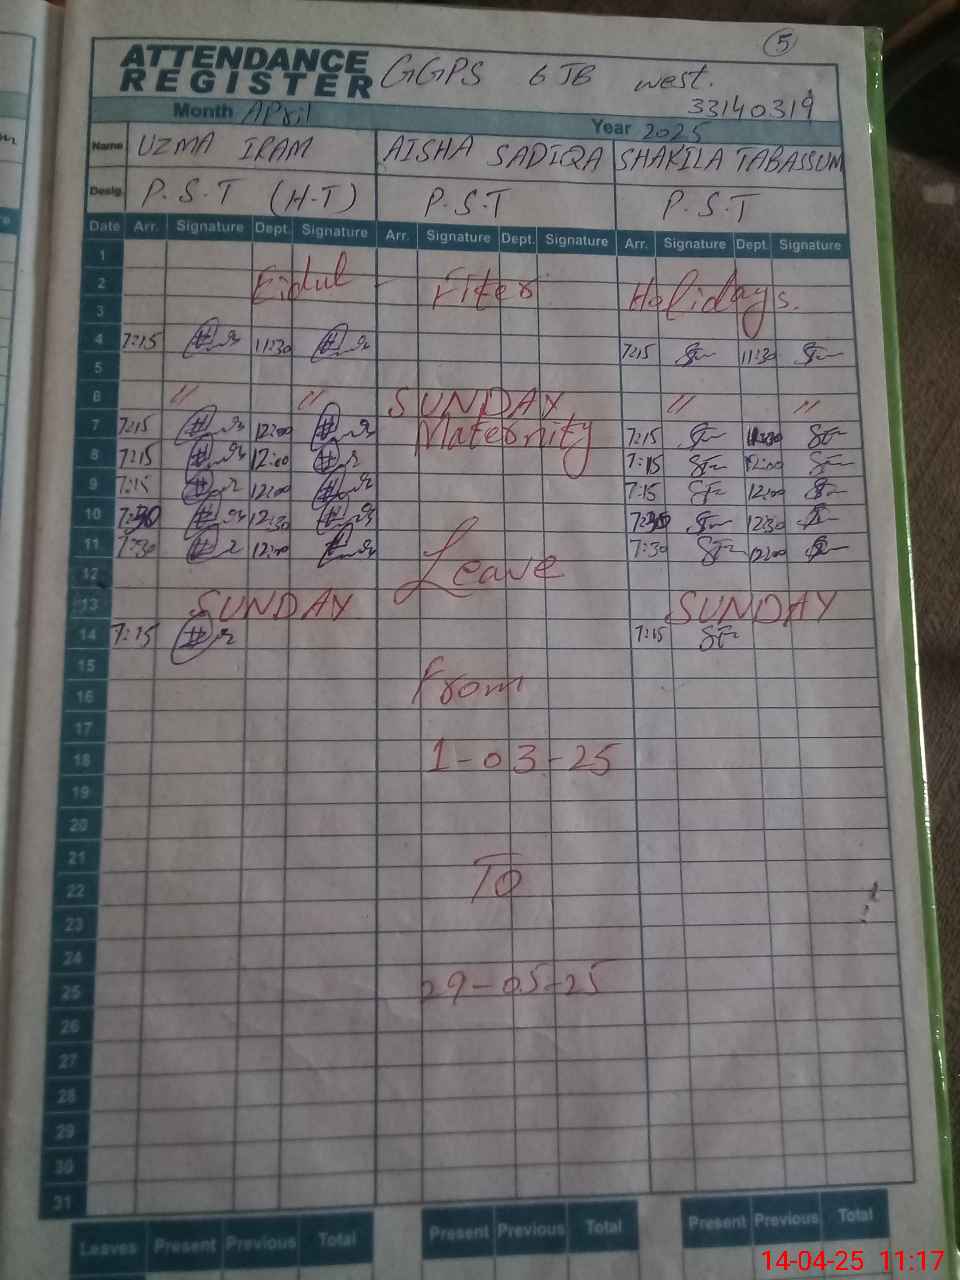 5
ATTENDANCE REGISTER GGPS 6 JB west.
33140319
Month April Year 2025
Name UZMA IRAM AISHA SADIQA SHAKILA TABASSUM
Desig. P.S.T (H.T) P.S.T P.S.T
Date Arr. Signature Dept. Signature Arr. Signature Dept. Signature Arr. Signature Dept. Signature
1
2 Eidul - Fiter Holidays.
3
4 7:15 11:30 7:15 11:30
5
6 " " SUNDAY " "
7 7:15 12:00 Maternity 7:15
8 7:15 12:00 7:15 12:00
9 7:15 12:00 7:15 12:00
10 7:30 12:30 7:30 12:30
11 7:30 12:00 7:30 12:00
12 Leave
13 SUNDAY SUNDAY
14 7:15 7:15
15
16 From
17
18 1-03-25
19
20
21
22 To
23
24
25 29-05-25
26
27
28
29
30
31
Leaves Present Previous Total Present Previous Total Present Previous Total
14-04-25 11:17